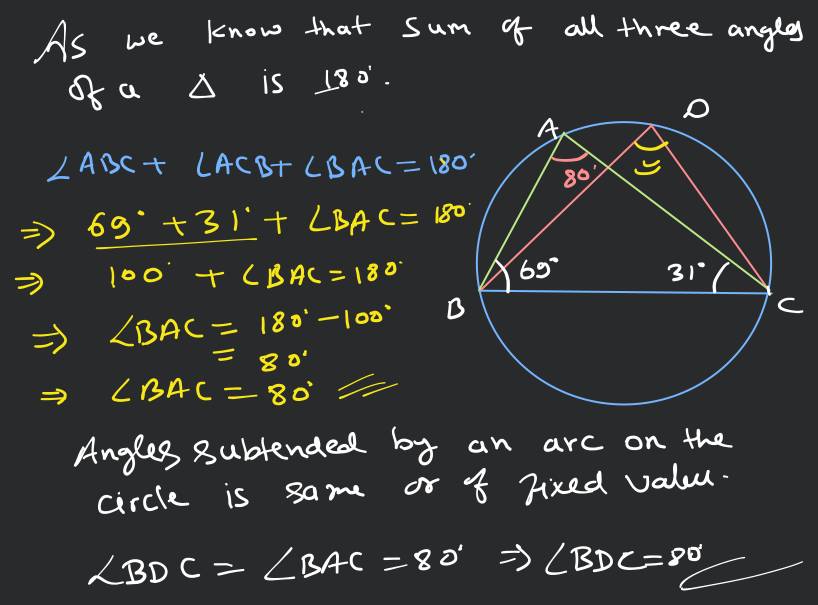 As we know that sum of all three angles
of a Δ is 180°.
∠ABC + ∠ACB + ∠BAC = 180°
⇒ 69° + 31° + ∠BAC = 180°
⇒ 100° + ∠BAC = 180°
⇒ ∠BAC = 180° - 100°
= 80°
⇒ ∠BAC = 80°
A
D
80°
69°
31°
B
C
Angles subtended by an arc on the
circle is same or of fixed value.
∠BDC = ∠BAC = 80° ⇒ ∠BDC = 80°